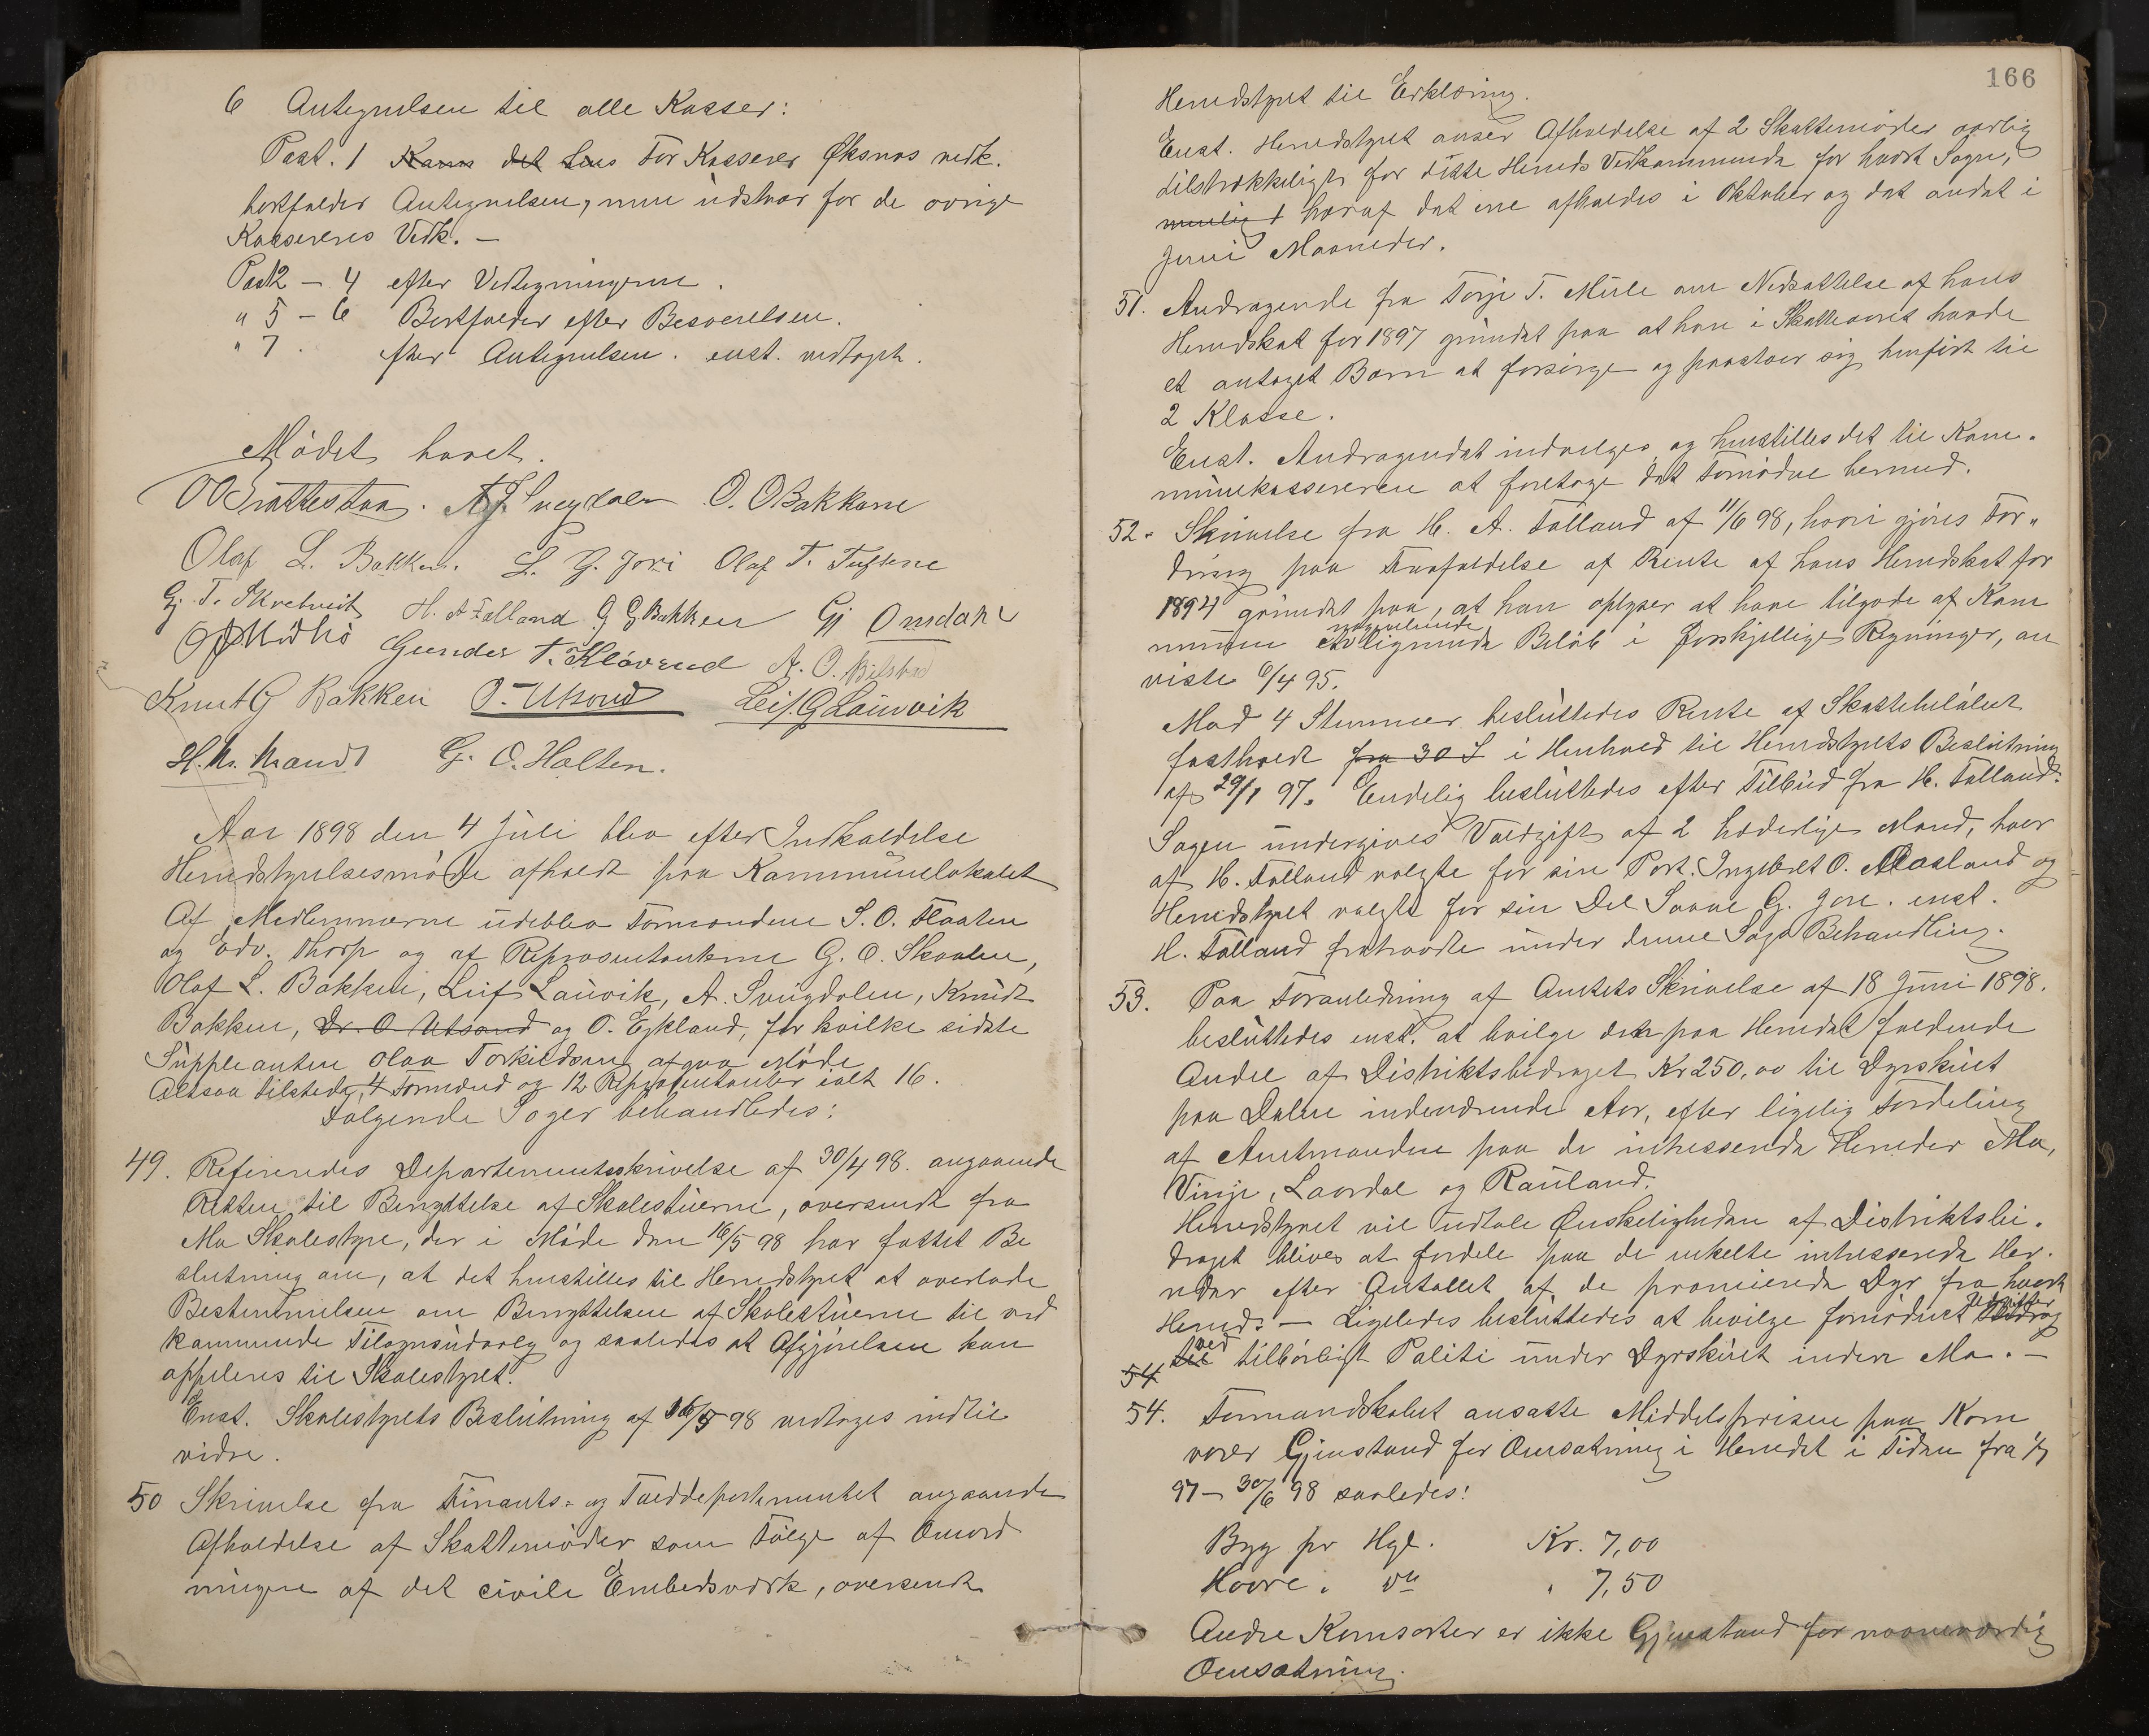 6 Antegnelsen til alle Kasser:
Post. 1 Kasse det Lens For Kasserer Øksnes vedk.
bortfalder Antegnelsen, men udstaar for de øvrige
Kassereres Vedk. —
Post 2 — 4 efter Vedtegningerne.
" 5 — 6 Bortfalder efter Besvarelsen.
" 7. efter Antegnelsen. enst. vedtaget.
Mødet hævet.
O O Brattestaa. A J Svugdalen O. O Bakkane
Olaf L. Bakken. S. G. Jore Olaf T. Tuftene
G. T. Skretveit H. A Falland G G Bakken Gj Omdahl
O J Midbø Gunder T. Kløvrud A. O.
Knut G Bakken O. Utsond Leif. G Lauvik
H. M. Mandt G. O. Holten.
Aar 1898 den 4 Juli blev efter Indkaldelse
Herredstyrelsesmøde afholdt paa Kommunelokalet
Af Medlemmerne udeblev Formændene S. O. Flaaten
og Edv. Thorp og af Repræsentanterne G. O. Skaalen,
Olaf L. Bakken, Leif Lauvik, A. Svugdalen, Knudt
Bakken, Dr. O. Utsond og O. Ejkland, for hvilke sidste
Suppleanten Olav Torkildsen afgav Møde
Altsaa tilstede 4 Formænd og 12 Repræsentanter ialt 16.
Følgende Sager behandledes:
49. Refereredes Departementsskrivelse af 30/4 98. angaaende
Retten til Benyttelse af Skolestuerne, oversendt fra
Mo Skolestyre, der i Møde den 16/5 98 har fattet Be
slutning om, at det henstilles til Herredstyret at overlade
Bestemmelsen om Benyttelsen af Skolestuerne til ved
kommende Tilsynsudvalg og saaledes at Afgjørelsen kan
appeleres til Skolestyret.
Enst. Skolestyrets Beslutning af 16/5 98 vedtages indtil
videre.
50 Skrivelse fra Finants- og Tolddepartementet angaaende
Afholdelse af Skattemøder som Følge af Omord
ningen af det civile Embedsværk, oversendt
166
Herredstyret til Erklæring.
Enst. Herredstyret anser Afholdelse af 2 Skattemøder aarlig
tilstrækkeligt for dette Herreds Vedkommende for hvert Sogn,
nemlig 1 hvoraf det ene afholdes i Oktober og det andet i
Juni Maaneder.
51. Andragende fra Torje T. Mule om Nedsættelse af hans
Herredskat for 1897 grundet paa at han i Skatteaaret havde
et antaget Barn at forsørge og paastaar sig henført til
2 Klasse.
Enst. Andragendet indvilges og henstilles det til Kom-
munekassereren at foretage det Fornødne hermed.
52. Skrivelse fra H. A. Falland af 11/6 98, hvori gjøres For-
dring paa Frafaldelse af Rente af hans Herredskat for
1894 grundet paa, at han oplyser at have tilgode af Kom
munen tilsvarende Beløb i forskjellige Regninger, an
viste 6/4 95.
Mod 4 Stemmer besluttedes Rente af Skattebeløbet
fastholdt fra 30 S i Henhold til Herredstyrets Beslutning
af 29/1 97. Endelig besluttedes efter Tilbud fra H. Falland:
Sagen undergives Voldgift af 2 hæderlige Mænd, hvor
af H. Falland valgte for sin Part. Ingebret O. Aasland og
Herredstyret valgte for sin Del Saave G. Jore. enst.
H. Falland fratraadte under denne Sags Behandling.
53. Paa Foranledning af Amtets Skrivelse af 18 Juni 1898.
besluttedes enst. at bevilge den paa Herredet faldende
Andel af Distriktsbidraget Kr 250,00 til Dyrskuet
paa Dalen indeværende Aar, efter ligelig Fordeling
af Amtmanden paa de interesserede Herreder Mo,
Vinje, Laardal og Rauland.
Herredstyret vil udtale Ønskeligheden af Distriktsbi-
draget bliver at fordele paa de enkelte interesserede Her-
reder efter Antallet af de præmierede Dyr fra hvert
Herred: — Ligeledes besluttedes at bevilge fornødne Udgifter
54 til ved tilbørligt Politi under Dyrskuet inden Mo. —
54. Formandskabet ansatte Middelsprisen paa Korn
varer Gjenstand for Omsætning i Herredet i Tiden fra 1/7
97 — 30/6 98 saaledes:
Byg pr Hgl. Kr. 7,00
Havre " do " 7,50
Andre Kornsorter er ikke Gjenstand for nævneværdig
Omsætning.